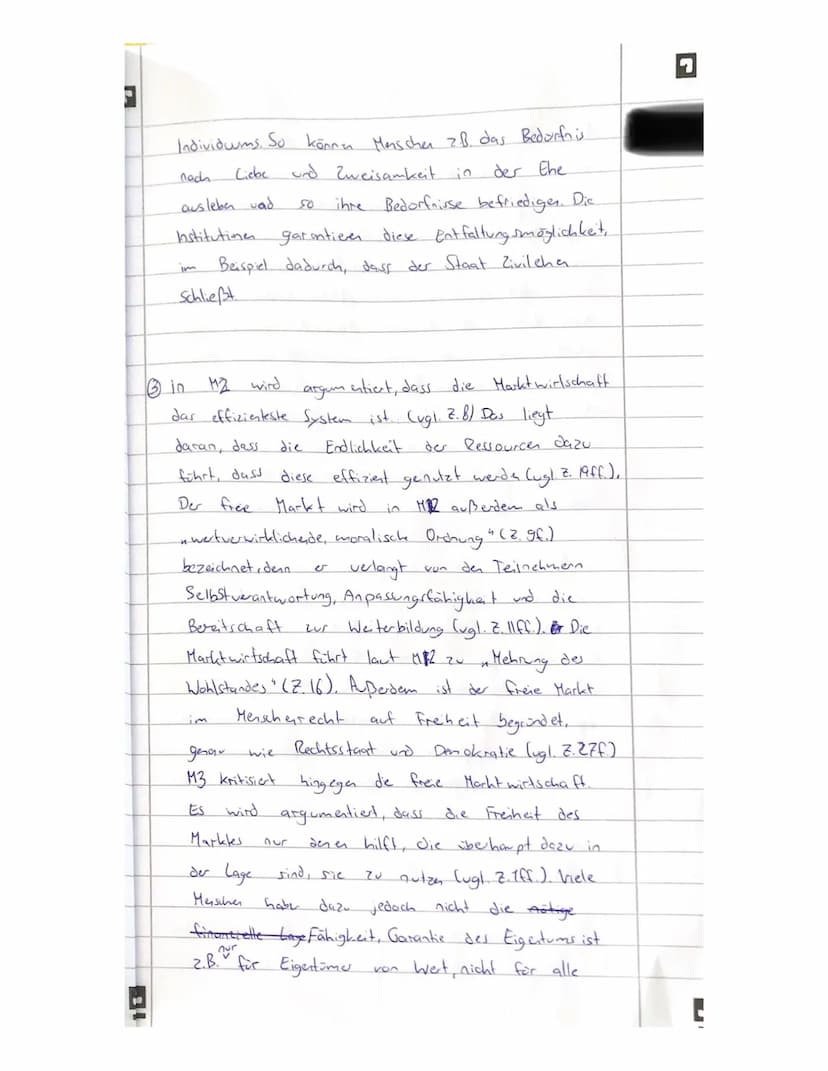 Individums. So können Menschen z.B. das Bedürfnis
nach Liebe und Zweisamkeit in der Ehe
ausleben und so ihre Bedürfnisse befriedigen. Die
Institutionen garantieren diese Entfaltungsmöglichkeit,
im Beispiel dadurch, dass der Staat Zivilehen
schließt.
③ in M2 wird argumentiert, dass die Marktwirtschaft
das effizienteste System ist. (vgl. Z. 8) Das liegt
daran, dass die Endlichkeit der Ressourcen dazu
führt, dass diese effizient genutzt werden (vgl. Z. 19ff.).
Der freie Markt wird in M2 außerdem als
„wertverwirklichende, moralische Ordnung" (Z. 9f.)
bezeichnet, denn er verlangt von den Teilnehmern
Selbstverantwortung, Anpassungsfähigkeit und die
Bereitschaft zur Weiterbildung (vgl. Z. 11ff.). Die
Marktwirtschaft führt laut M2 zu „Mehrung des
Wohlstandes" (Z. 16). Außerdem ist der freie Markt
im Menschenrecht auf Freiheit begründet,
genau wie Rechtsstaat und Demokratie (vgl. Z. 27f)
M3 kritisiert hingegen die freie Marktwirtschaft.
Es wird argumentiert, dass die Freiheit des
Marktes nur denen hilft, die überhaupt dazu in
der Lage sind, sie zu nutzen (vgl. Z. 1ff.). Viele
Menschen haben dazu jedoch nicht die nötige
finanzielle Lage Fähigkeit, Garantie des Eigentums ist
z.B. nur für Eigentümer von Wert, nicht für alle